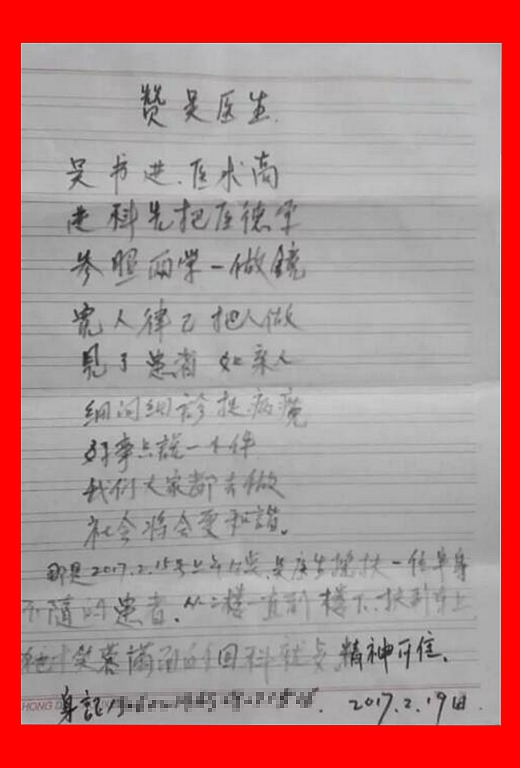 赞吴医生
吴书进.医术高
进科先把医德学
参照两学一做镜
宽人律己把人做
見了患者如亲人
细问细诊找病
好事点说一个件
我们大家都去做
社会将会更和諧。
那是2017.2.15号上午10点,吴医生搀扶一位半身
不随的患者.从二楼一直到楼下.扶到车上
他才笑蓉滿面的回科就,精神可佳.
HONG
身証 2017.2.19日.